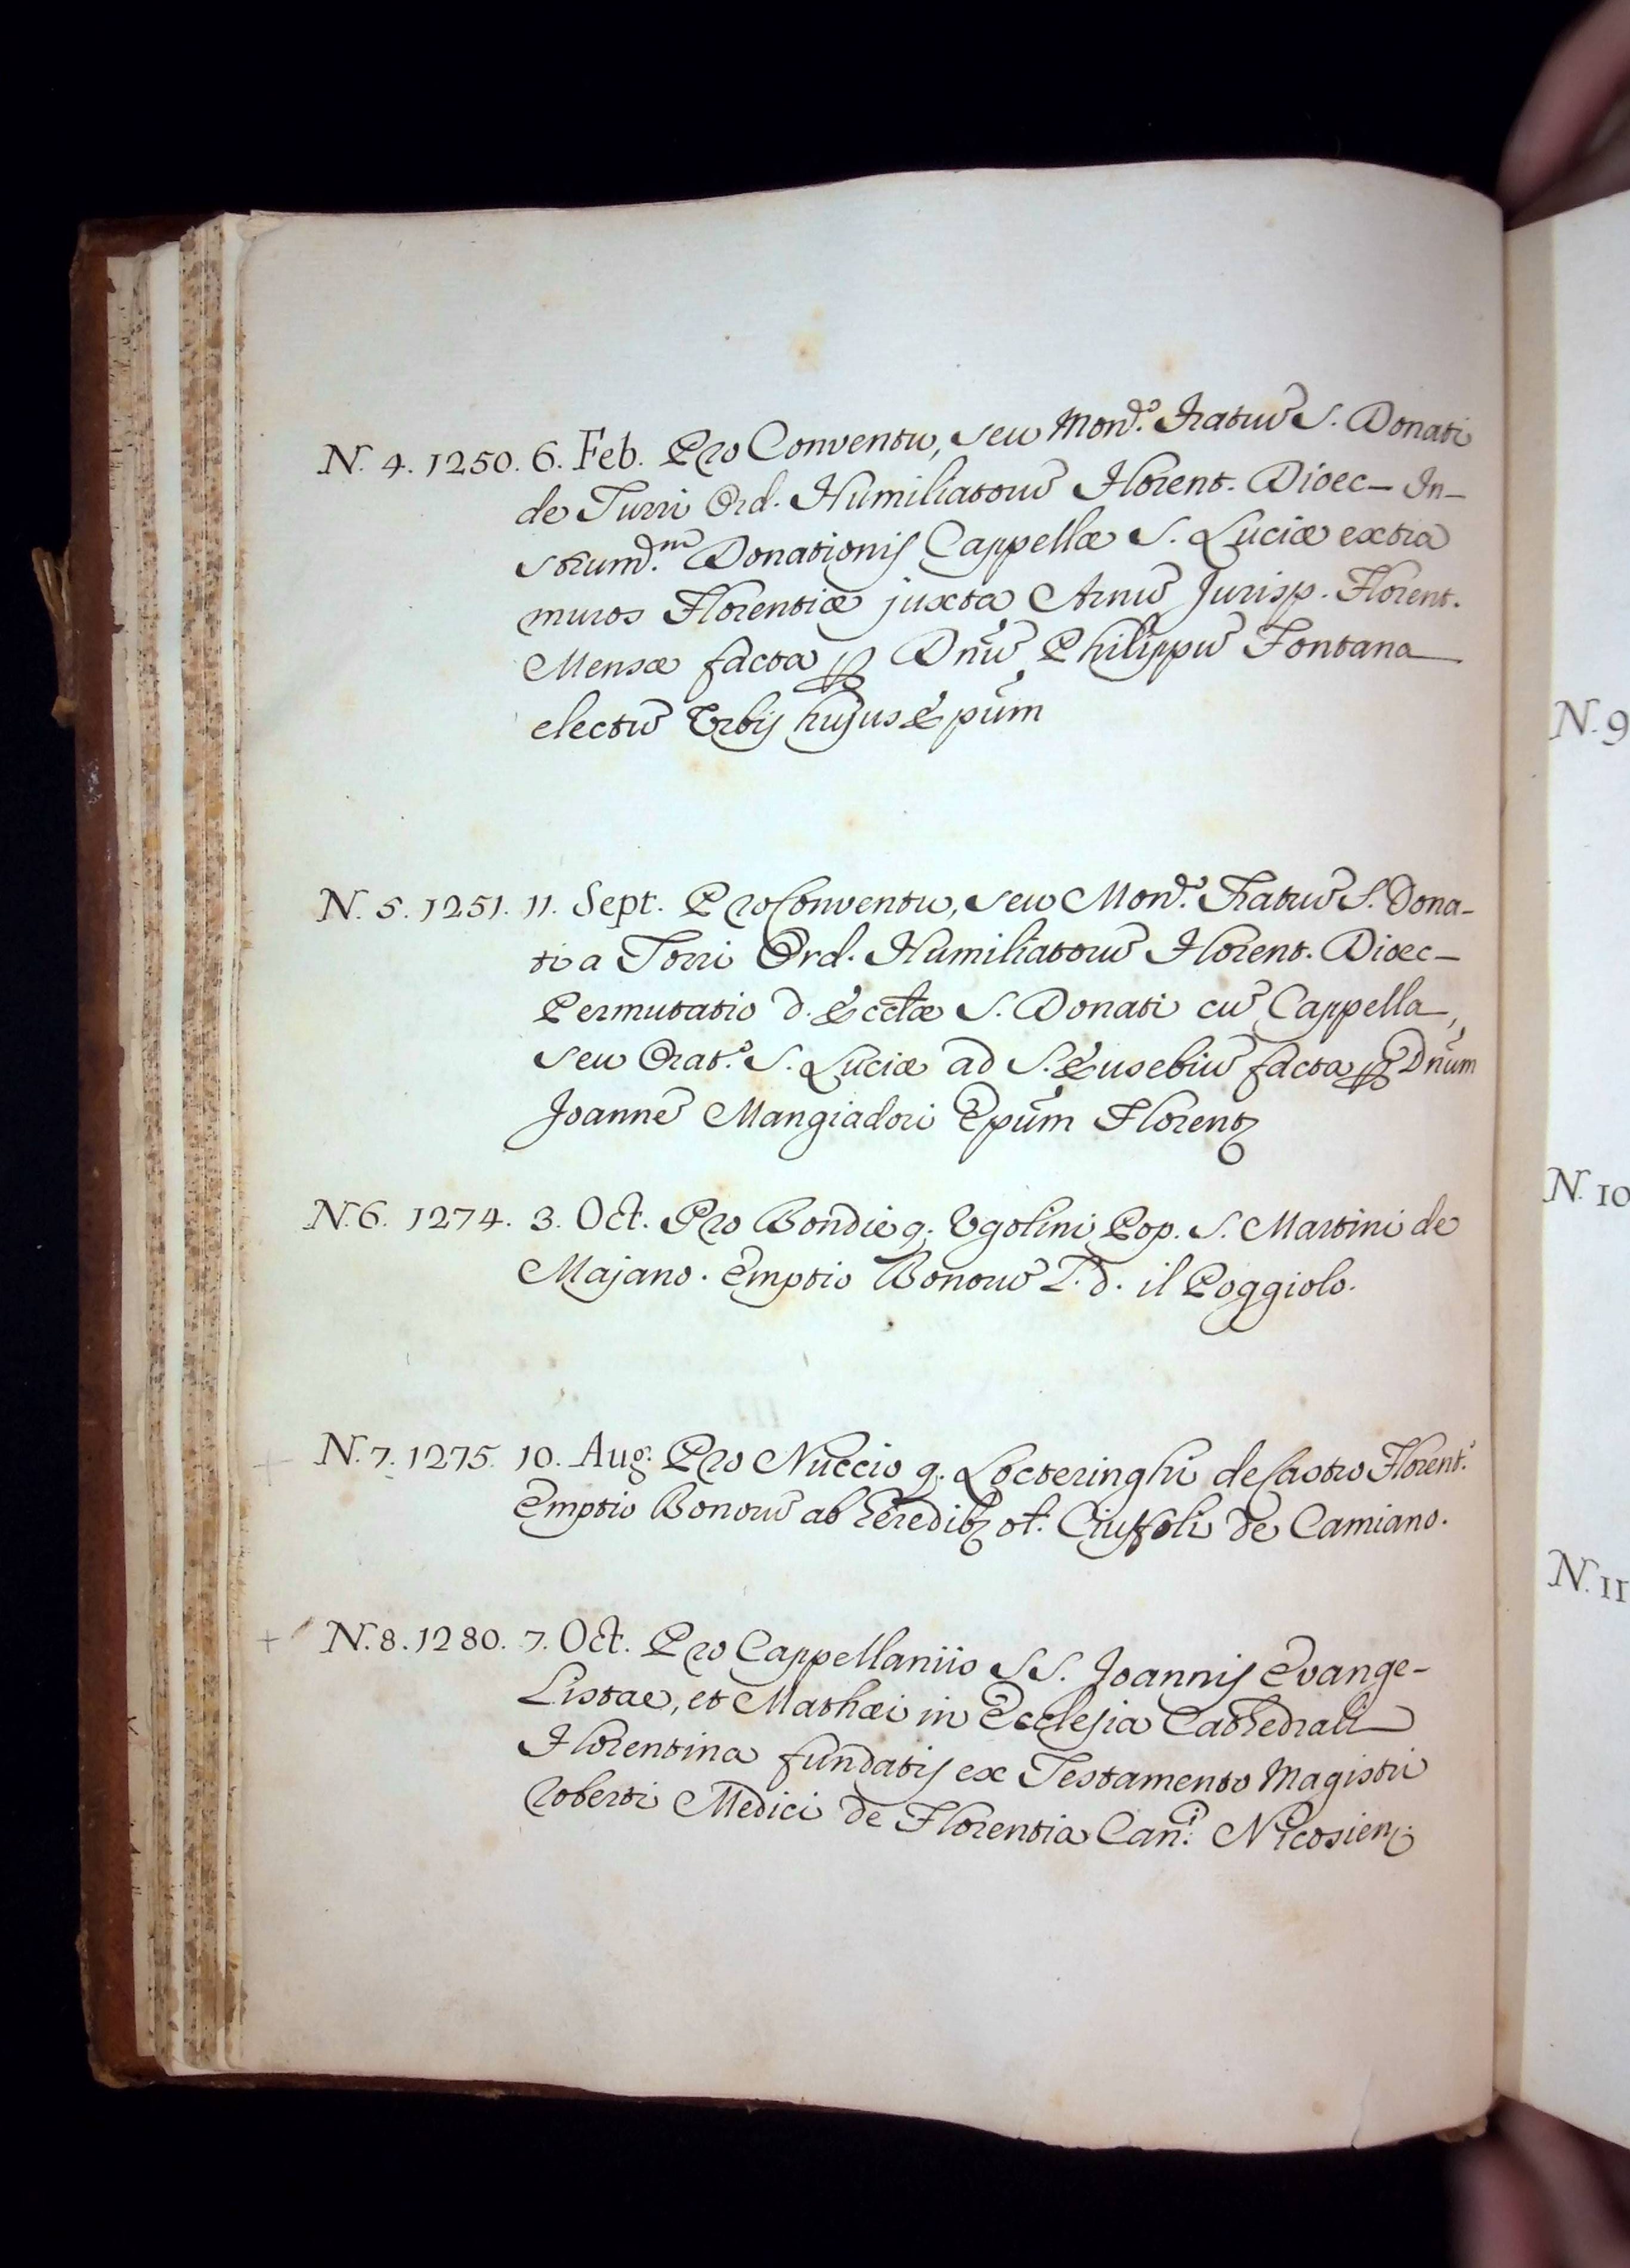 N. 4. 1250. 6. Feb. Pro Conventu, seu Mon.º Fratrū S. Donati
de Turri Ord. Humiliatorū Florent. Dioec- In-
strum.m Donationis Cappellæ S. Luciæ extra
muros Florentiæ juxta Arnū Jurisp. Florent.
Mensæ facta p Dnū Philippū Fontana
electū Urbis hujus Epūm
N. 5. 1251. 11. Sept. Pro Conventu, seu Mon.º Fratrū S. Dona-
ti a Torri Ord. Humiliatorū Florent. Dioec-
Permutatio d. Ecctæ S. Donati cū Cappella,
seu Orat.º S. Luciæ ad S. Eusebiū facta p Dnūm
Joannē Mangiadori Epūm Florentz
N. 6. 1274. 3. Oct. Pro Bondie q. Ugolini Pop. S. Martini de
Majano. Emptio Bonorū L. d. il Poggiolo.
N. 7. 1275. 10. Aug. Pro Nuccio q. Locteringhi de Castro Florent.º
Emptio Bonorū ab heredibz ol. Ciuffoli de Camiano.
N. 8. 1280. 7. Oct. Pro Cappellaniis SS. Joannis Evange-
Listae, et Mathæi in Ecclesia Cathedrali
Florentina fundatis ex Testamento Magistri
Roberti Medici de Florentia Can.i Nicosien.
N. 9
N. 10
N. 11